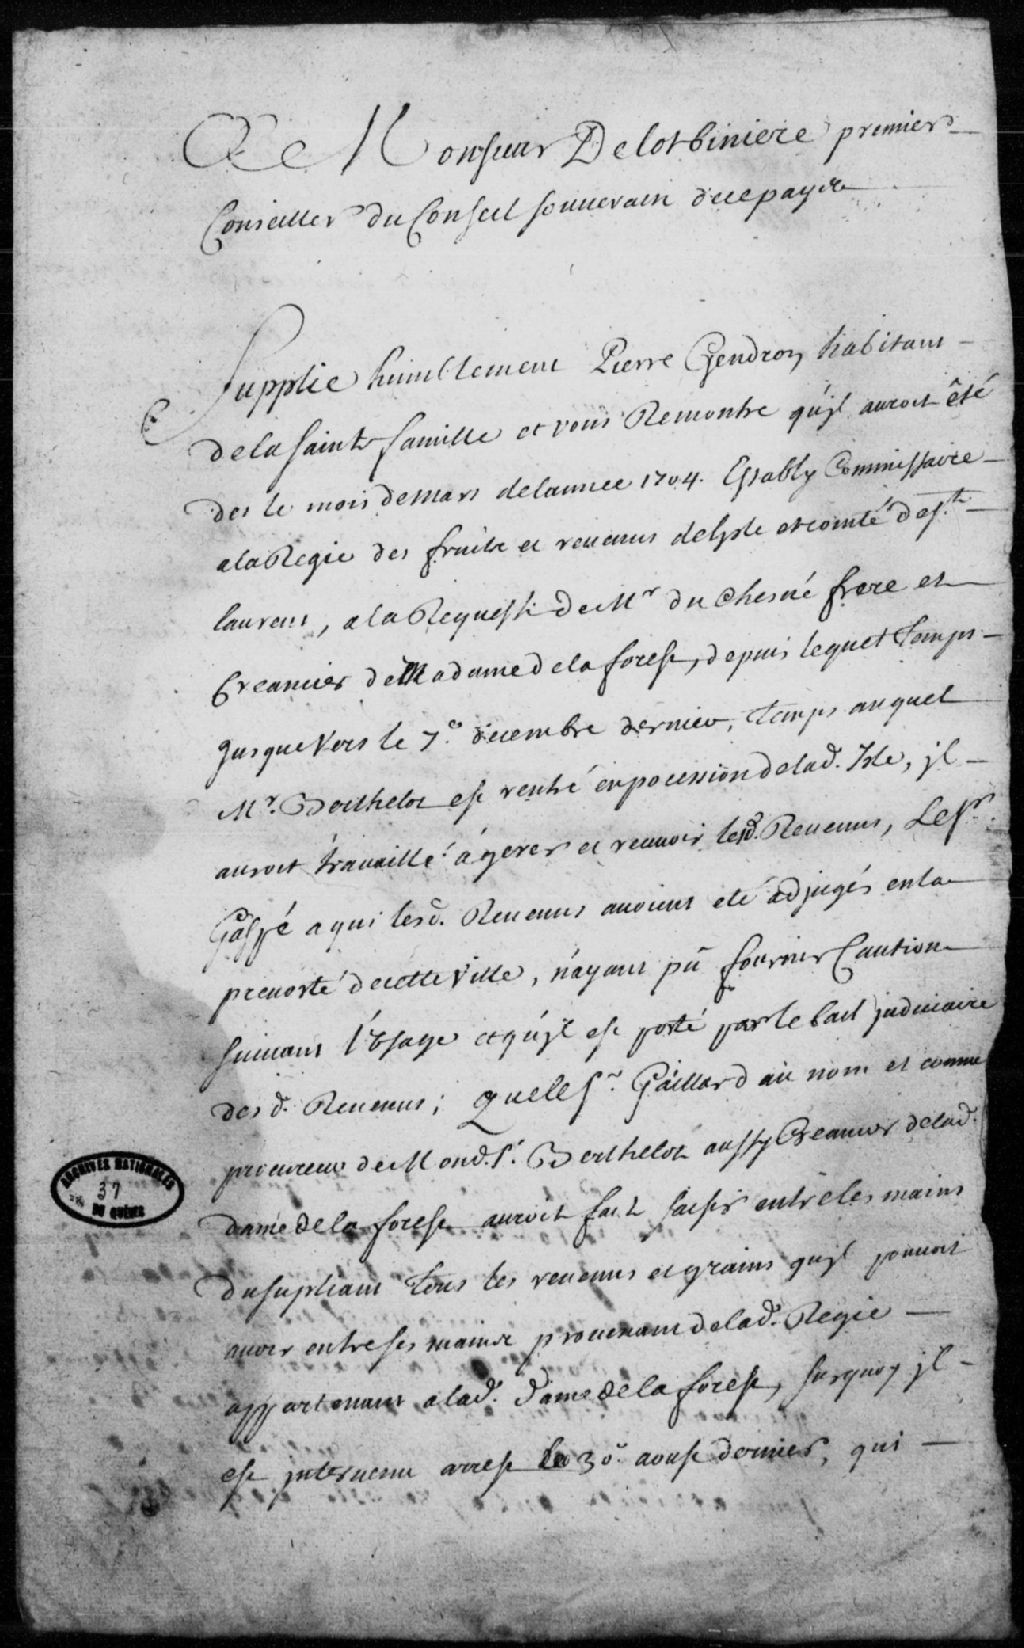 A Monsieur Delotbiniere premier
Conseiller du Conseil souuerain decepayis
Supplie humblement Pierre Gendron habitant
delasainte famille et vous Remontre qu'jl auroit êté
des le mois demars delannee 1704. Estably Commissaire
alaRegie des fruits et reuenus delysle et comté des.t
laurens, ala Requeste de Mr du chesné frere et
Creancier de Madame dela forest, depuis lequel temps
jusque vers le 7e. decembre dernier, temps auquel
Mr. Berthelot est rentré enpocession delad. Isle, jl
auroit trauaillé a gerer et receuoir lesd. Reuenus, Le sr.
Gaspé a qui lesd. Reuenus auoient eté adjugés enla
preuosté decette ville, n'ayant pû fournir Caution
suiuant l'Vsage et qu'jl est porté par le bail judiciaire
desd. Reuenus; que le sr. Gaillard au nom et comme
procureur de Mond. sr. Berthelot aussy Creancier delad.
dame de la forest auroit fait saisir entre les mains
dusupliant tous les reuenus et grains qu'jl pouuoit
auoir entre ses mains prouenant delad. Regie
appartenant alad. dame de la forest, surquoy jl
est jnteruenu arrest le 30e. aoust dernier, qui
ARCHIVES NATIONALES
37
DU QUÉBEC